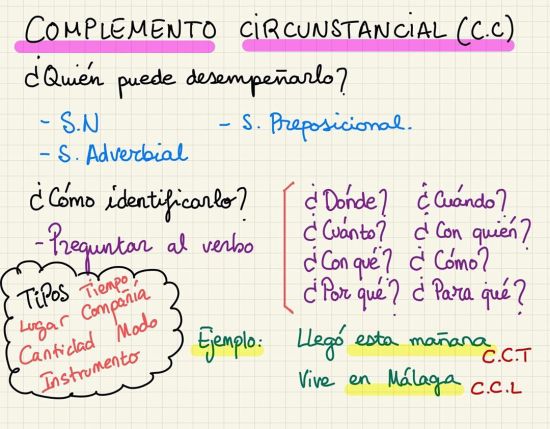 COMPLEMENTO CIRCUNSTANCIAL (C.C)
¿Quién puede desempeñarlo?
- S.N - S. Preposicional.
- S. Adverbial
¿Cómo identificarlo?
- Preguntar al verbo
¿Dónde? ¿Cuándo?
¿Cuánto? ¿Con quién?
¿Con qué? ¿Cómo?
¿Por qué? ¿Para qué?
TIPOS Tiempo
Lugar Compañía
Cantidad Modo
Instrumento
Ejemplo: Llegó esta mañana C.C.T
Vive en Málaga C.C.L